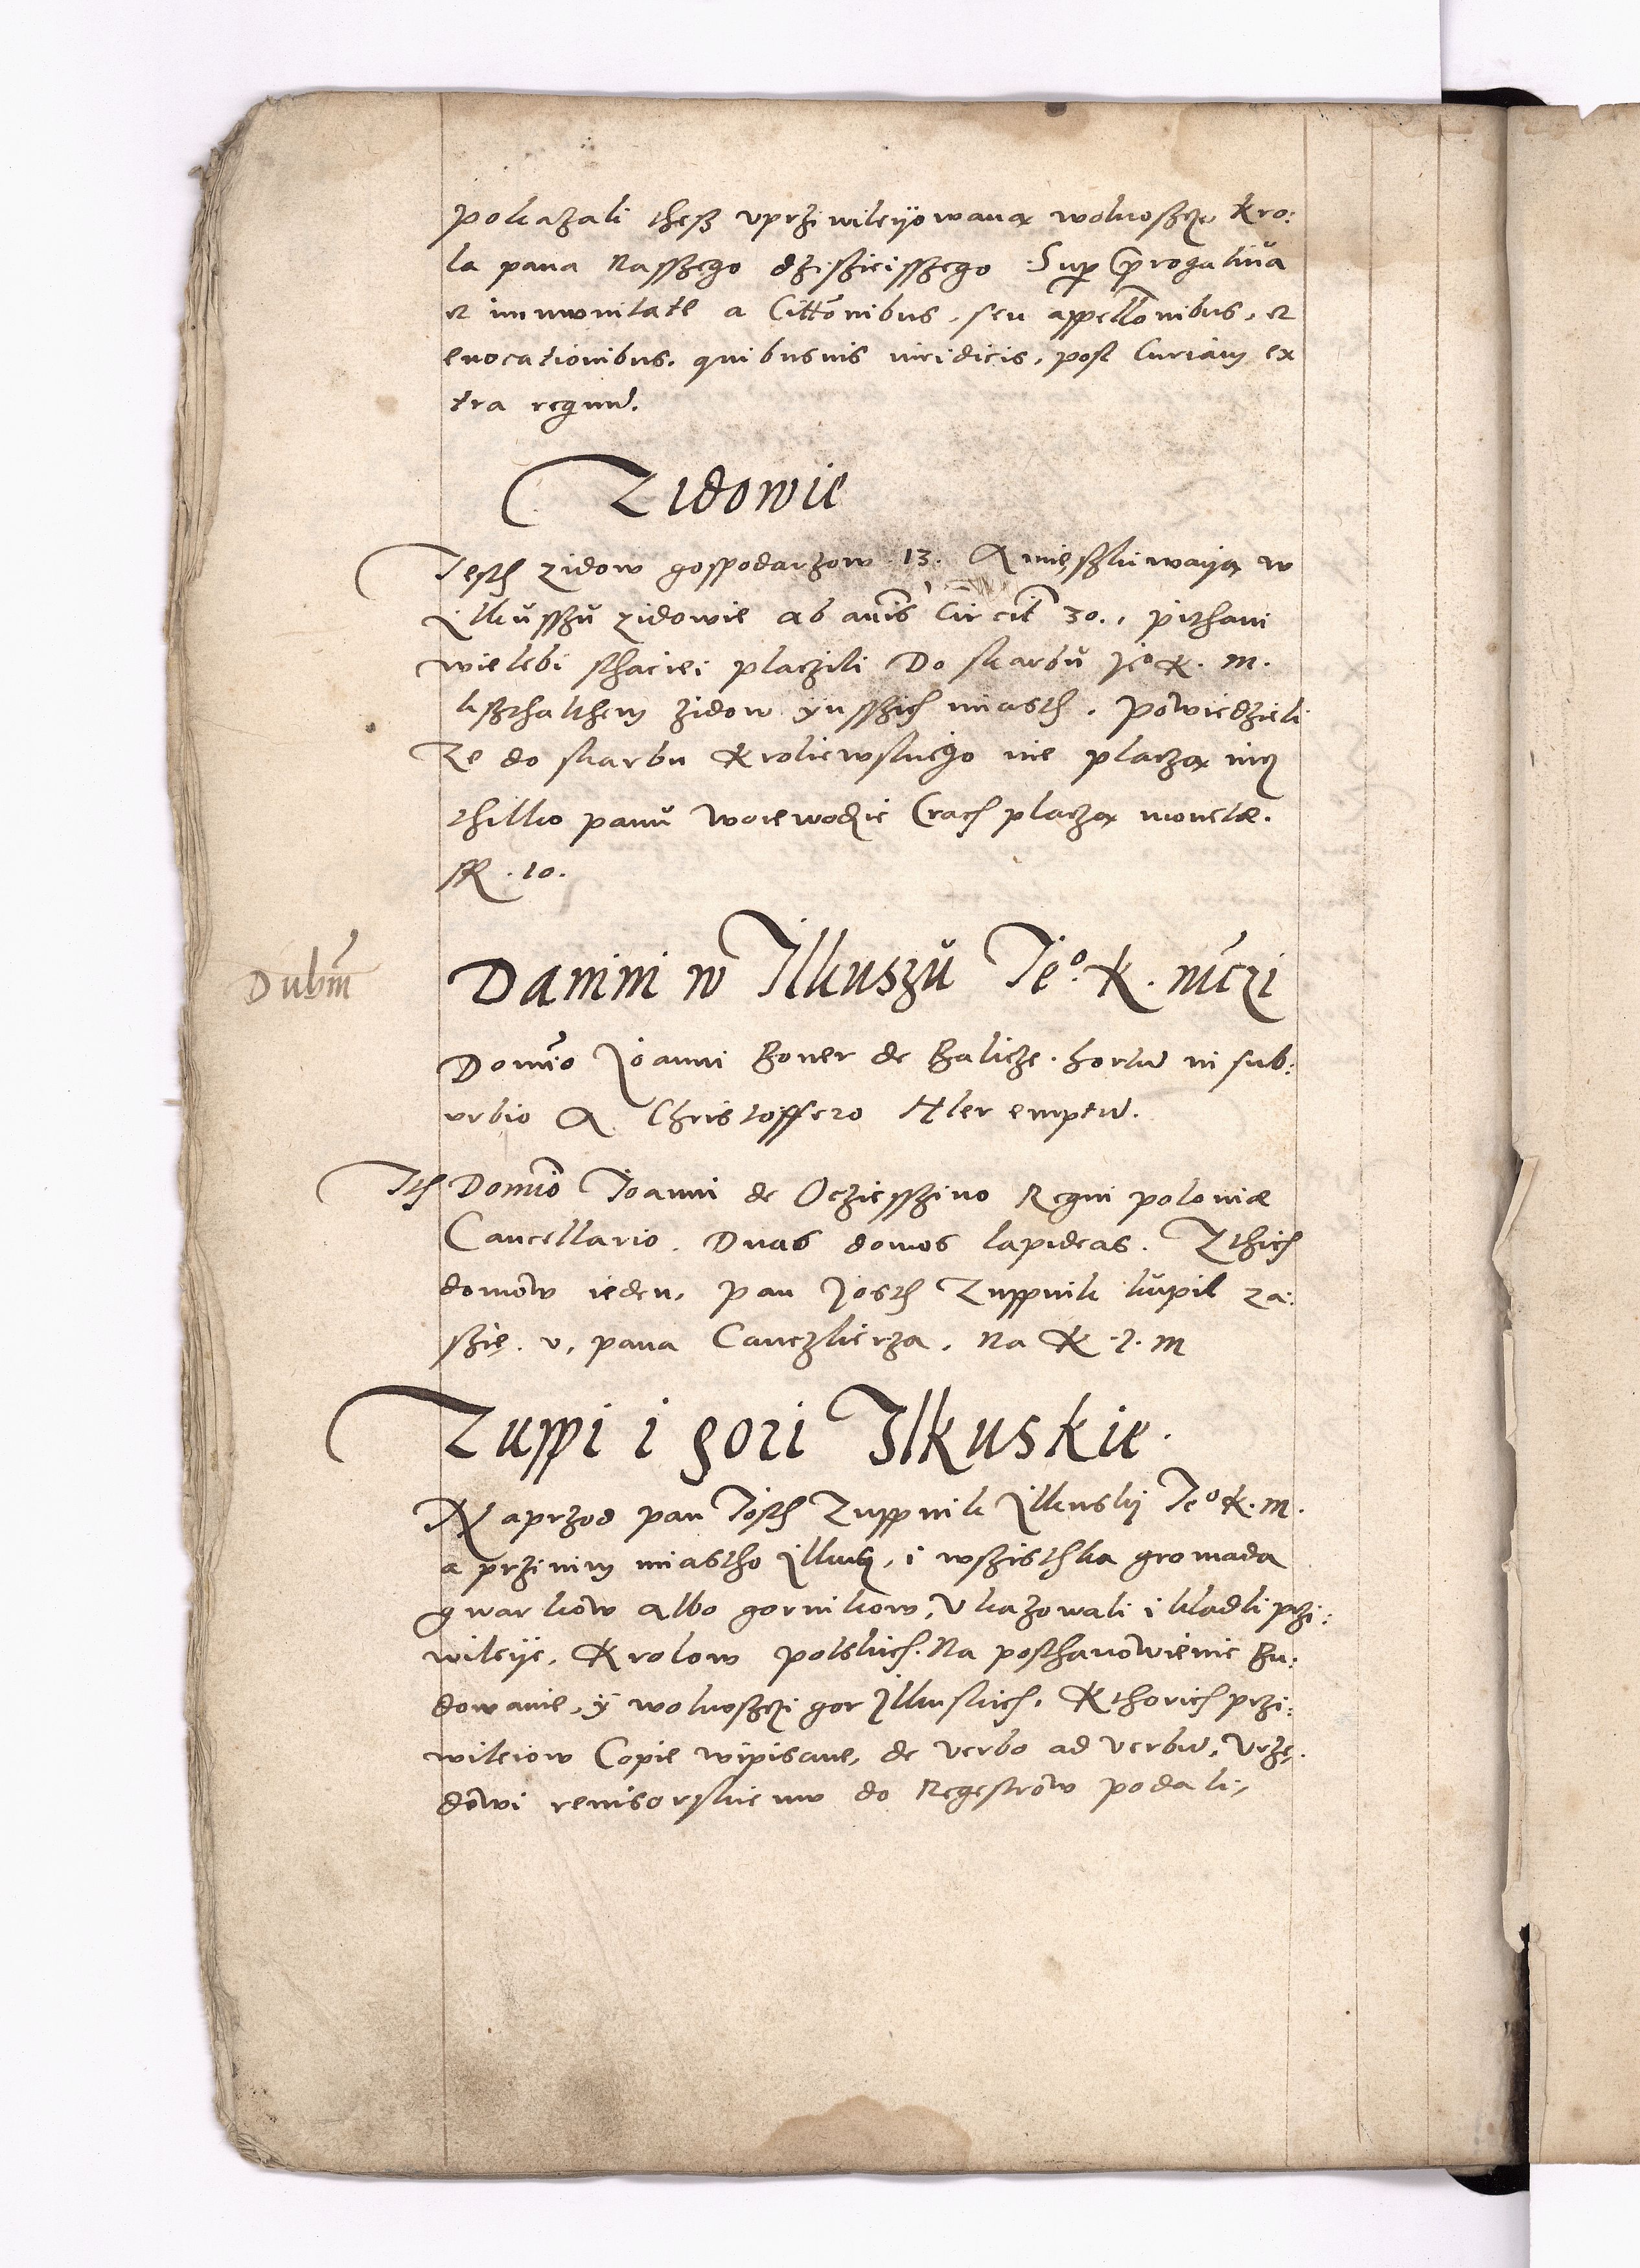 pokazali thesz uprziwileÿowaną wolnosczą Kro:
la pana Nasszego dzisżieisszego Sup prerogatiŭa
et immunitate a Cittonibus, seu appellonibus, et
evocationibus, quibusvis iuridicis, post Curiam ex
tra regnum.
Zidowie
Jesth zidow gospodarzow 13. A mięszkiwaiją w
Ilkŭsszŭ zidowie ab annis Circit 30., pithani
wielebi sthaciei placzili Do skarbŭ Je° K. M.
kszthalthem zidow ynsszich miasth, powiedzieli
Ze do skarbu Kroliewskiego nie placzą nicz
thilko panŭ woiewodzie Crach placzą monetæ.
fl. 10.
Dubm
Danini w Ilkuszŭ Je°. K. mczi
Domio Joanni Boner de Balicze. hortum in sub:
urbio A Christoffero Hler emptum.
Ith Domio Joanni de Ocziesszino Regni poloniæ
Cancellario. Duas domos lapideas. Zthich
domow ieden, pan Josth Zuppnik kŭpil za:
szię. v, pana Canczlierza, Na K. J. M
Zuppi i gori Ilkuskie.
Naprzod pan Josth Zuppnik Ilkuskÿ Je° K. M.
a przinim miastho Ilkusz, i wszisthka gromada
gwarkow albo gornikow, Ukazowali i kladli przi:
wileÿe, Krolow polskich. Na posthanowienie Bu:
dowanie, ÿ wolnosczi gor Ilkuskich, Kthorich przi:
wileiow Copie wipisane, de verbo ad verbum, Urzę:
dowi revisorskiemu do Regestrow podali,